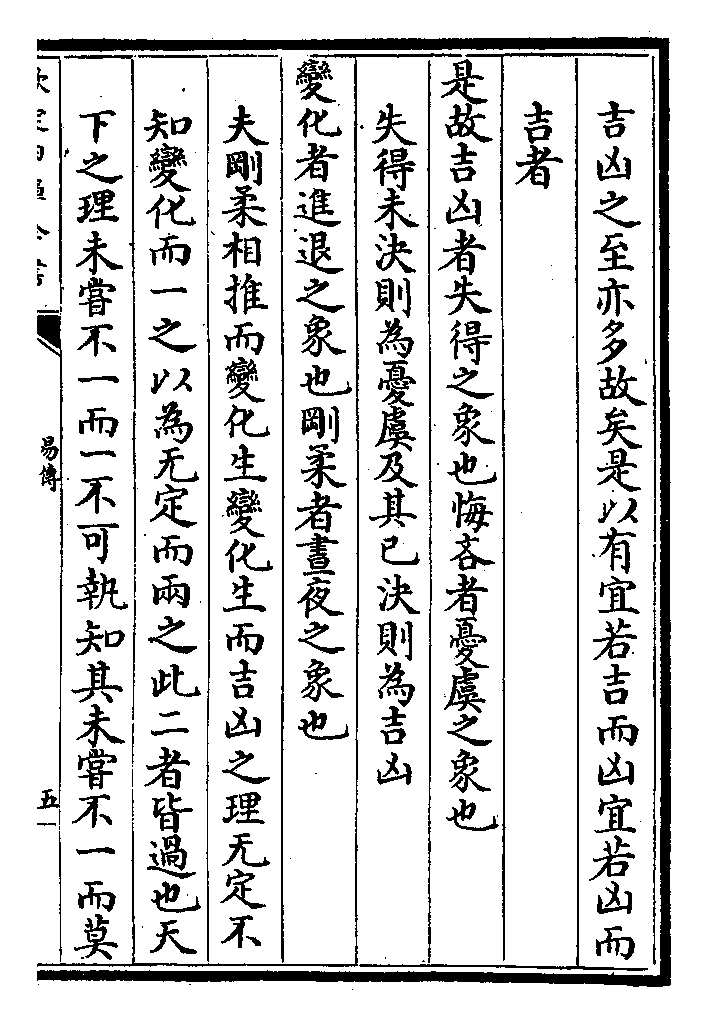 吉凶之至亦多故矣是以有宜若吉而凶宜若凶而
吉者
是故吉凶者失得之象也悔吝者憂虞之象也
失得未決則為憂虞及其已決則為吉凶
變化者進退之象也剛柔者晝夜之象也
夫剛柔相推而變化生變化生而吉凶之理无定不
知變化而一之以為无定而兩之此二者皆過也天
下之理未嘗不一而一不可執知其未嘗不一而莫
易傳
五